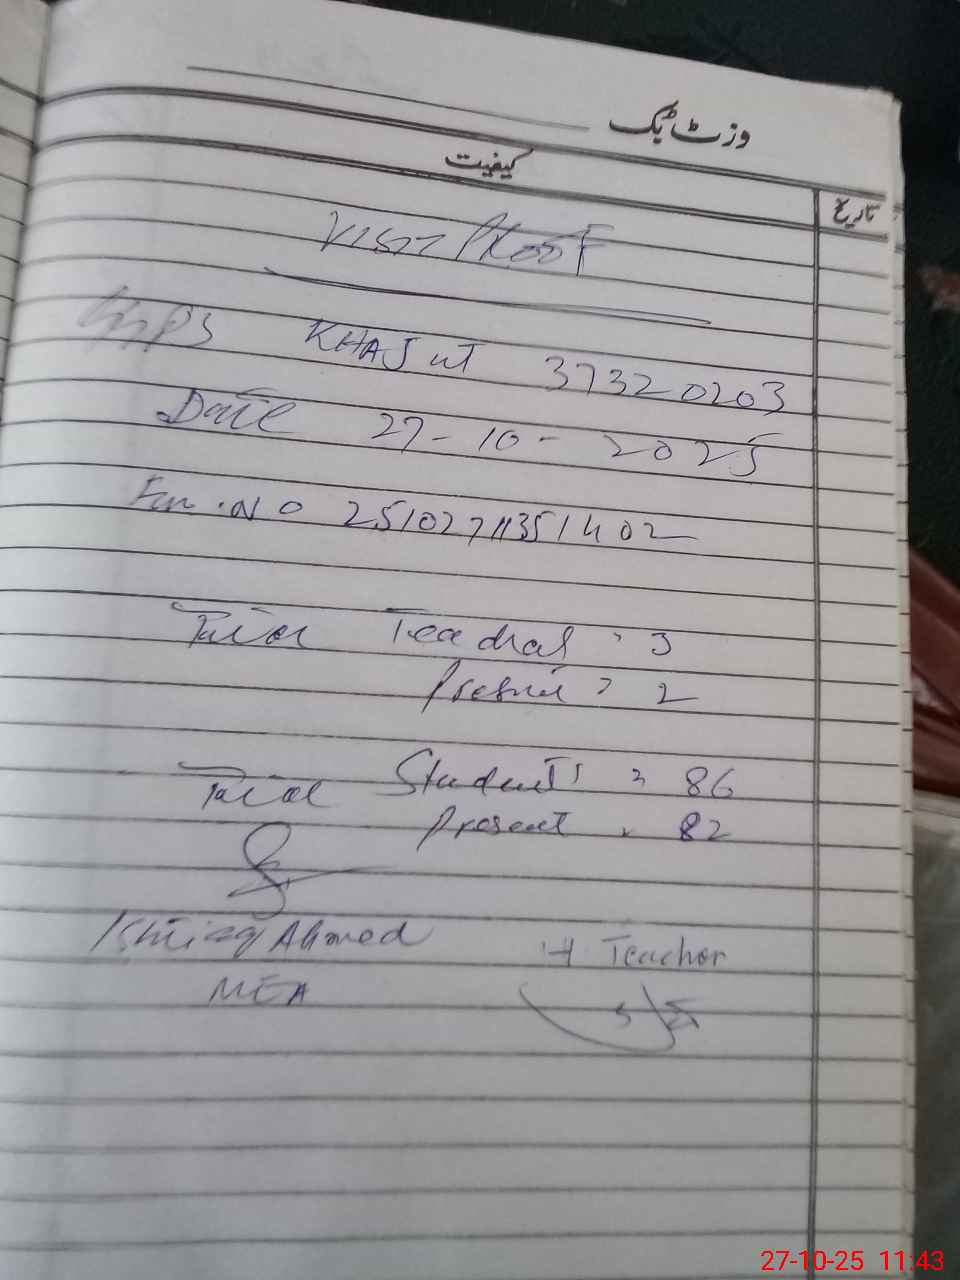 وزٹ بک
کیفیت
تاریخ
VISIT PROOF
GGPS KHAJUT 37320203
Date 27-10-2025
No 25102711351402
Total Teachers 3
Present 2
Total Students 86
Present 82
Ishtiaq Ahmed
H Teacher
MEA
27-10-25 11:43